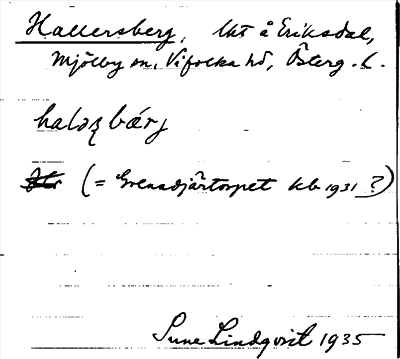 Hallersberg, lht å Eriksdal,
Mjölby sn, Vifolka hd, Österg. l.
halɑʐbærj
(= Grenadjärtorpet kb 1931 ?)
Sune Lindqvist 1935